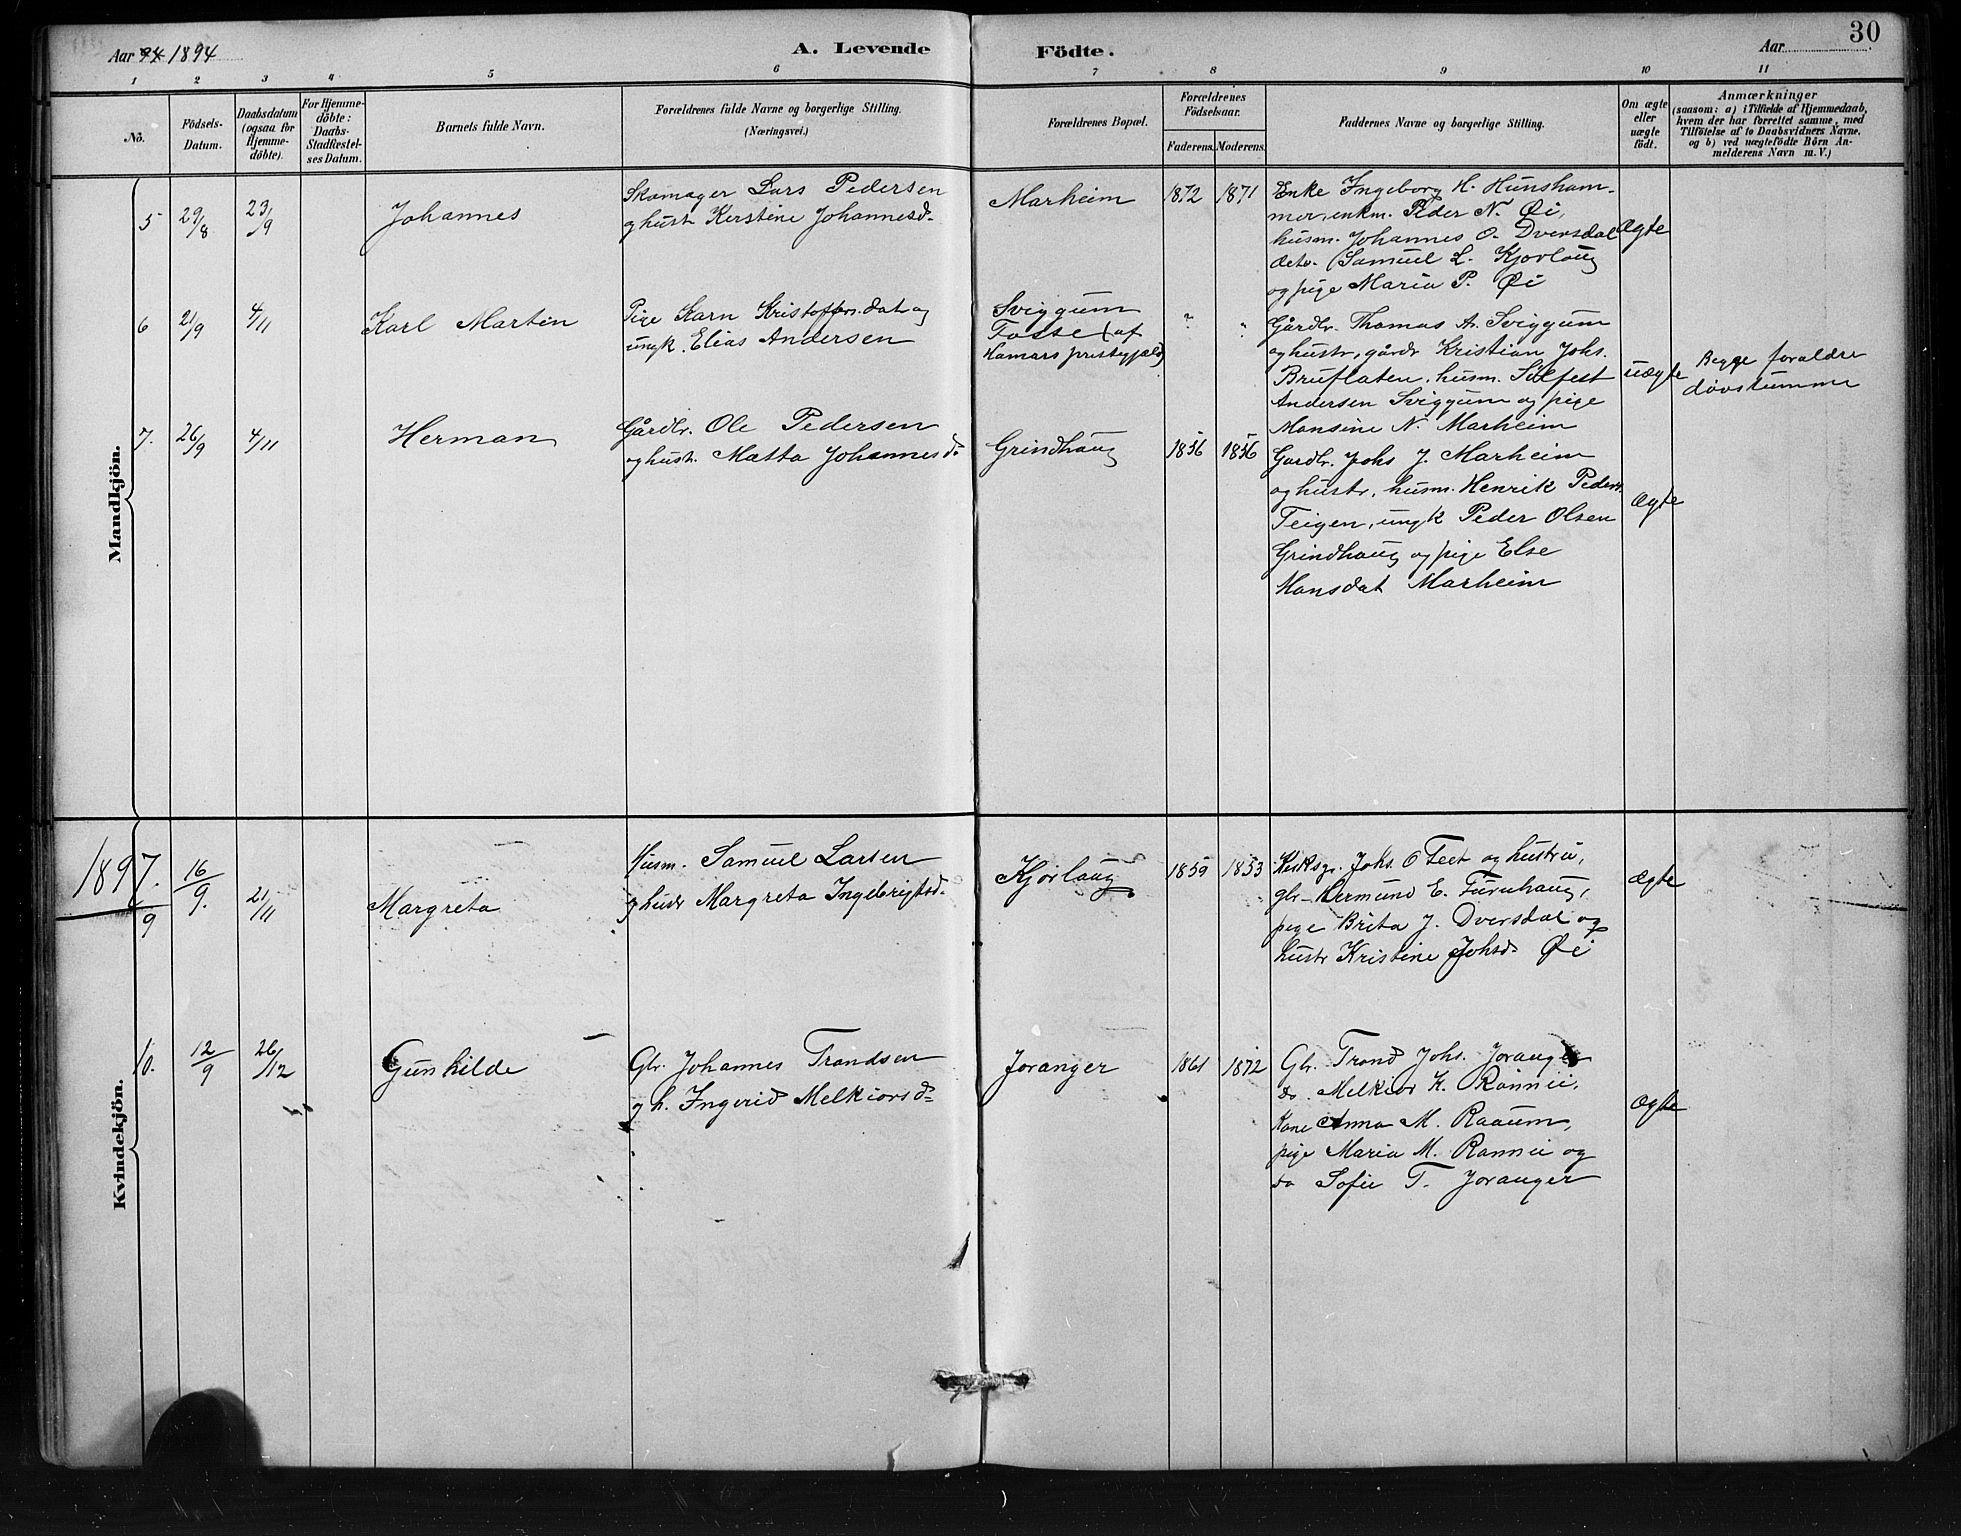 Aar 94 1894
A. Levende Födte.
Aar
30
1 2 3 4 5 6 7 8 9 10 11
Nö.
Födsels-Datum.
Daabsdatum (ogsaa for Hjemme-döbte).
For Hjemme-döbte: Daabs-Stadfæstel-ses Datum.
Barnets fulde Navn.
Forældrenes fulde Navne og borgerlige Stilling. (Næringsvei.)
Forældrenes Bopæl.
Forældrenes Födselsaar.
Faderens. Moderens.
Faddernes Navne og borgerlige Stilling.
Om ægte eller uægte födt.
Anmærkninger
(saasom: a) i Tilfælde af Hjemmedaab, hvem der har forrettet samme, med Tilföielse af to Daabsvidners Navne, og b) ved uægtefödte Börn An-melderens Navn m. V.)
Mandkjön.
5 29/8 23/9
Johannes
Skomager Lars Pedersen
og hust. Kerstine Johannesd.
Marheim
1872 1871
Enke Ingeborg H. Hunsham-
mer, enkm. Peder N. Øi,
husm. Johannes O. Dversdal
deto. Samuel L. Kjorlaug
og pige Maria P. Øi
Ægte
6 21/9 4/11
Karl Martin
Pige Karn Kristoffersdat og
ungk. Elias Andersen
Sviggum
Fosse (af
Hamars prestegjæld)
? "
Gårdbr. Thomas A. Sviggum
og hustr, gårdr Kristian Johs.
Bruflaten, husm. Silfest
Andersen Sviggum og pige
Mansine N. Marheim
uægte
Begge forældre
døvstumme
7. 26/9 4/11
Herman
Gårdbr. Ole Pedersen
og hust. Matta Johannesd.
Grindhaug
1856 1856
Gardbr. Johs J. Marheim
og hustr, husm. Henrik Peders.
Teigen, ungk Peder Olsen
Grindhaug og pige Else
Monsdat Marheim
Ægte
1897.
Kvindekjön.
9 16/9. 21/11
Margreta
Husm. Samuel Larsen
og hustr Margreta Ingebrigtsd.
Kjorlaug
1859 1853
Kirksgr. Johs. O Feet og hustru,
gbr. Hermund E. Furuhaug,
pige Brita J. Dversdal og
hustr Kristine Johsd. Øi
Ægte
10. 12/9 26/12
Gunhilde
Gbr. Johannes Trondsen
og h. Ingerid Melkiorsd.
Joranger
1861 1872
Gbr. Trond Johs. Joranger
do. Melkior K. Rønnei,
Kone Anna M. Raaum,
pige Maria M. Rønnei og
do Sofie T. Joranger
Ægte